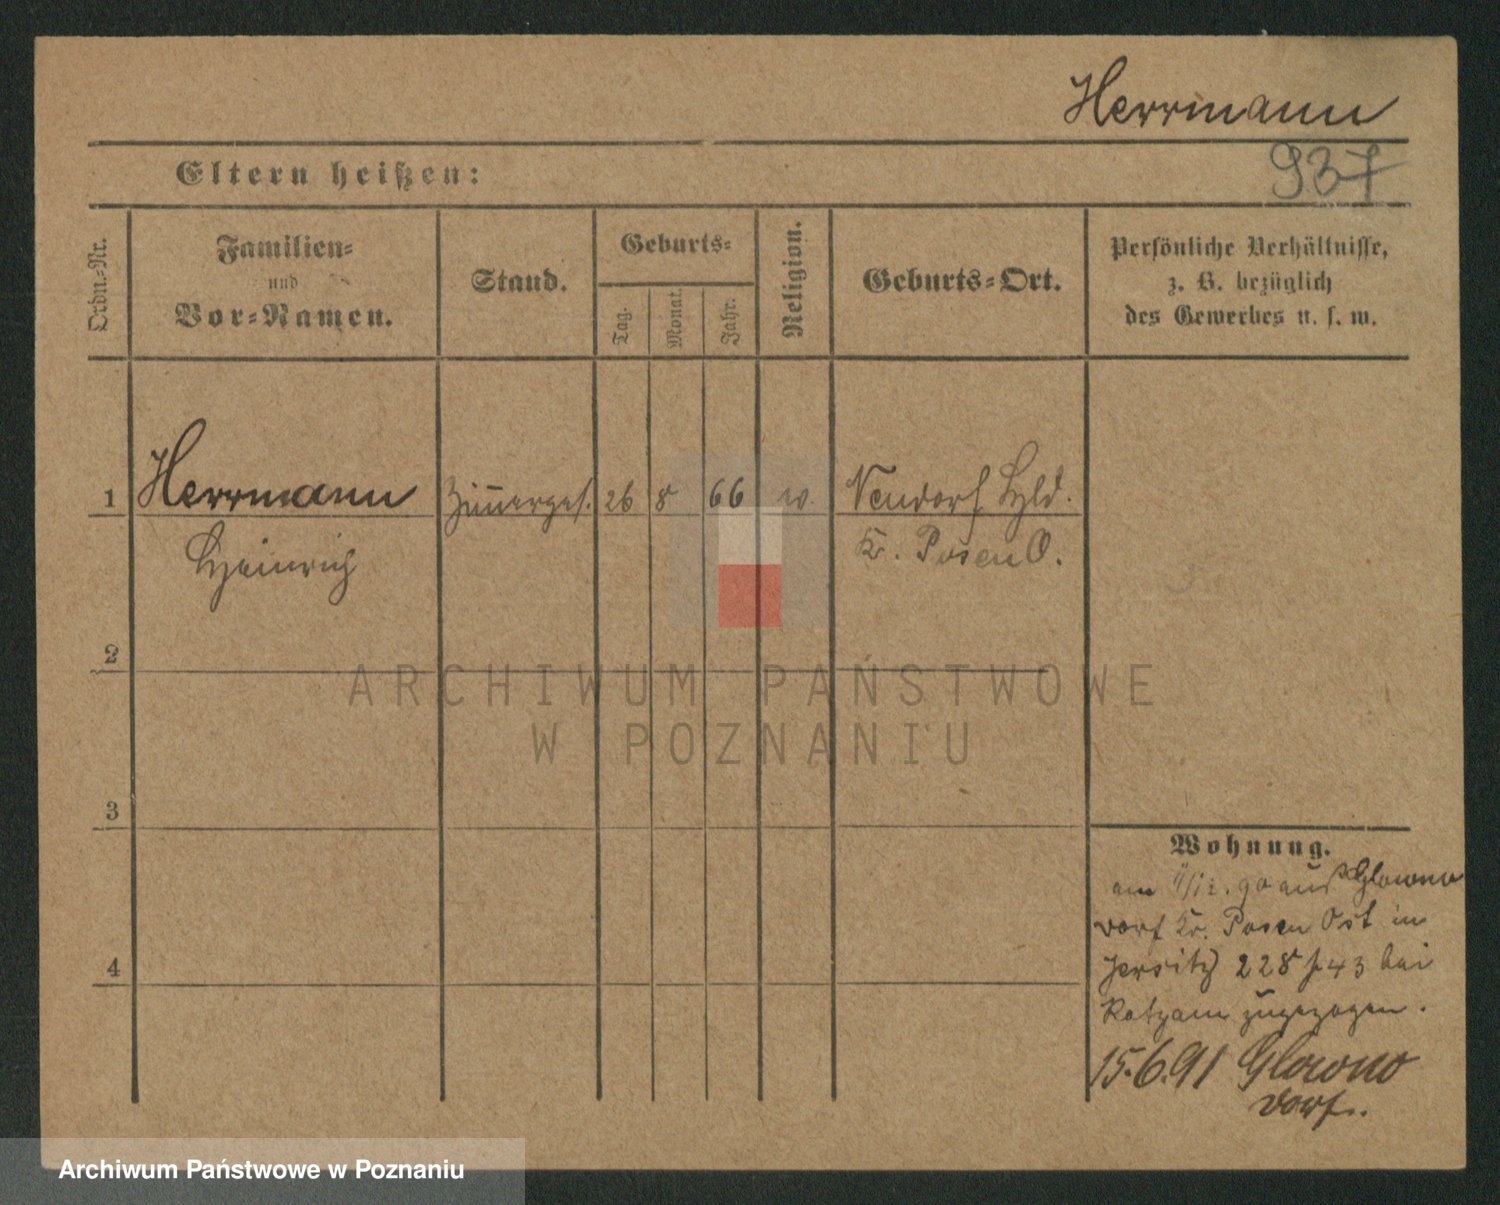 Herrmann
937
Eltern heißen:
Ordn.-Nr.
Familien-
und
Vor-Namen.
Stand.
Geburts-
Tag.
Monat.
Jahr.
Religion.
Geburts-Ort.
Persönliche Verhältnisse,
z. B. bezüglich
des Gewerbes u. s. w.
1 Herrmann Zimmerges. 26 8 66 Neudorf Hld.
Heinrich Kr. Posen O.
2
3
4
ARCHIWUM PAŃSTWOWE
W POZNANIU
Wohnung.
am 90 aus Glowno
Dorf Kr. Posen Ost in
Jersitz 228 43 bei
zugezogen.
15.6.91 Glowno
Dorf.
Archiwum Państwowe w Poznaniu